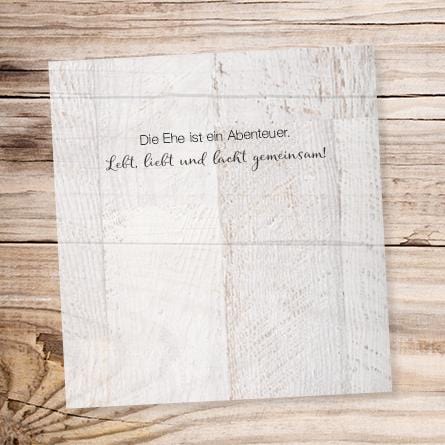 Die Ehe ist ein Abenteuer.
Lebt, liebt und lacht gemeinsam!